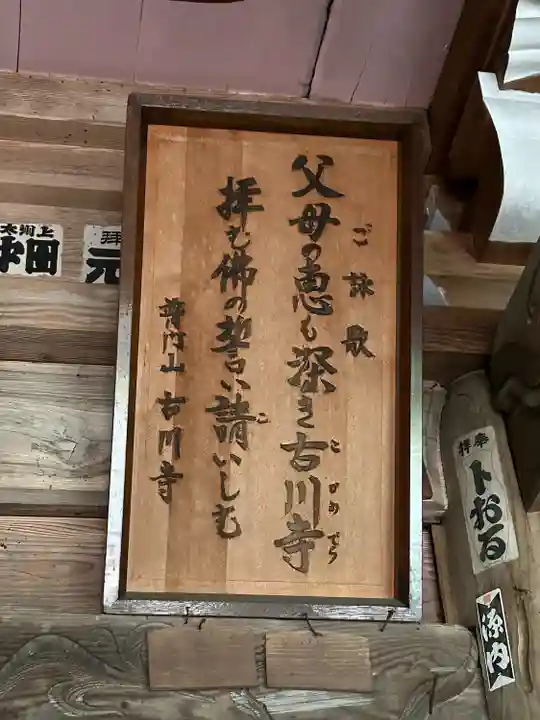 ご詠歌
父母の恵も深き古川寺
こがわでら
拝む佛の誓い請いしむ
こ
普門山 古川寺
田
拝
元
奉拝
トおる